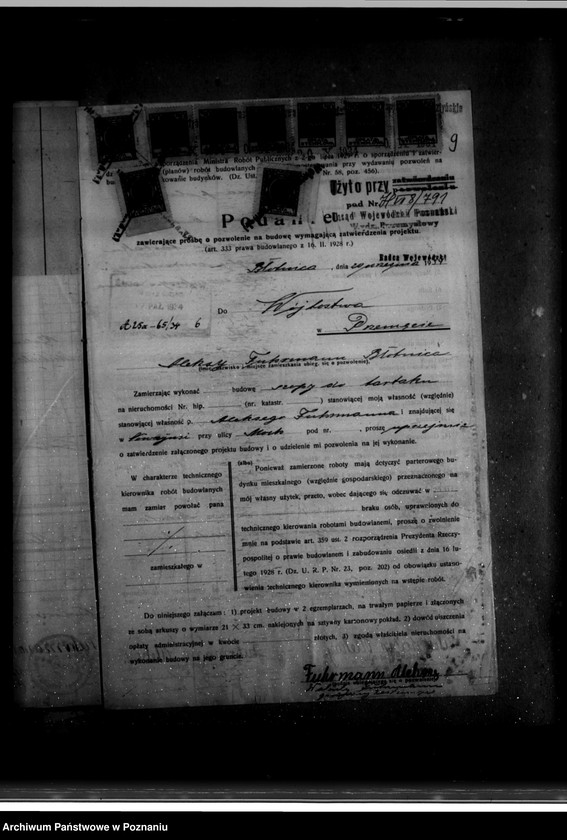 9
rozporządzenia Ministra Robót Publicznych z
(planów) robót budowlanych
przy wydawaniu pozwoleń na
Nr. 56, poz. 456).
Użyto przy zatwierdzeniu
pod Nr.
Urząd Wojewódzki Poznański
Podanie
zawierające prośbę o pozwolenie na budowę wymagającą zatwierdzenia projektu.
(art. 333 prawa budowlanego z 16. II. 1928 r.)
Radca Wojewódzki
Błotnica, dnia
A 25a-65/34 6
Do Wójtostwa
w Przemęcie
Aleksy Fuhrmann Błotnica
Zamierzając wykonać budowę szopy do tartaku
na nieruchomości Nr. hip. (nr. katastr. ) stanowiącej moją własność (względnie)
stanowiącej własność p. Aleksego Fuhrmanna i znajdującej się
w przy ulicy pod nr. , proszę uprzejmie
o zatwierdzenie załączonego projektu budowy i o udzielenie mi pozwolenia na jej wykonanie.
W charakterze technicznego
kierownika robót budowlanych
mam zamiar powołać pana
zamieszkałego w
(albo) Ponieważ zamierzone roboty mają dotyczyć parterowego bu-
dynku mieszkalnego (względnie gospodarskiego) przeznaczonego na
mój własny użytek, przeto, wobec dającego się odczuwać w
braku osób, uprawnionych do
technicznego kierowania robotami budowlanemi, proszę o zwolnienie
mnie na podstawie art. 359 ust. 2 rozporządzenia Prezydenta Rzeczy-
pospolitej o prawie budowlanem i zabudowaniu osiedli z dnia 16 lu-
tego 1928 r. (Dz. U. R. P. Nr. 23, poz. 202) od obowiązku ustano-
wienia technicznego kierownika wymienionych na wstępie robót.
Do niniejszego załączam: 1) projekt budowy w 2 egzemplarzach, na trwałym papierze i złączonych
ze sobą arkuszy o wymiarze 21 × 33 cm. naklejonych na sztywny kartonowy pokład, 2) dowód uiszczenia
opłaty administracyjnej w kwocie złotych, 3) zgodą właściciela nieruchomości na
wykonanie budowy na jego gruncie.
Fuhrmann Aleksy
Archiwum Państwowe w Poznaniu